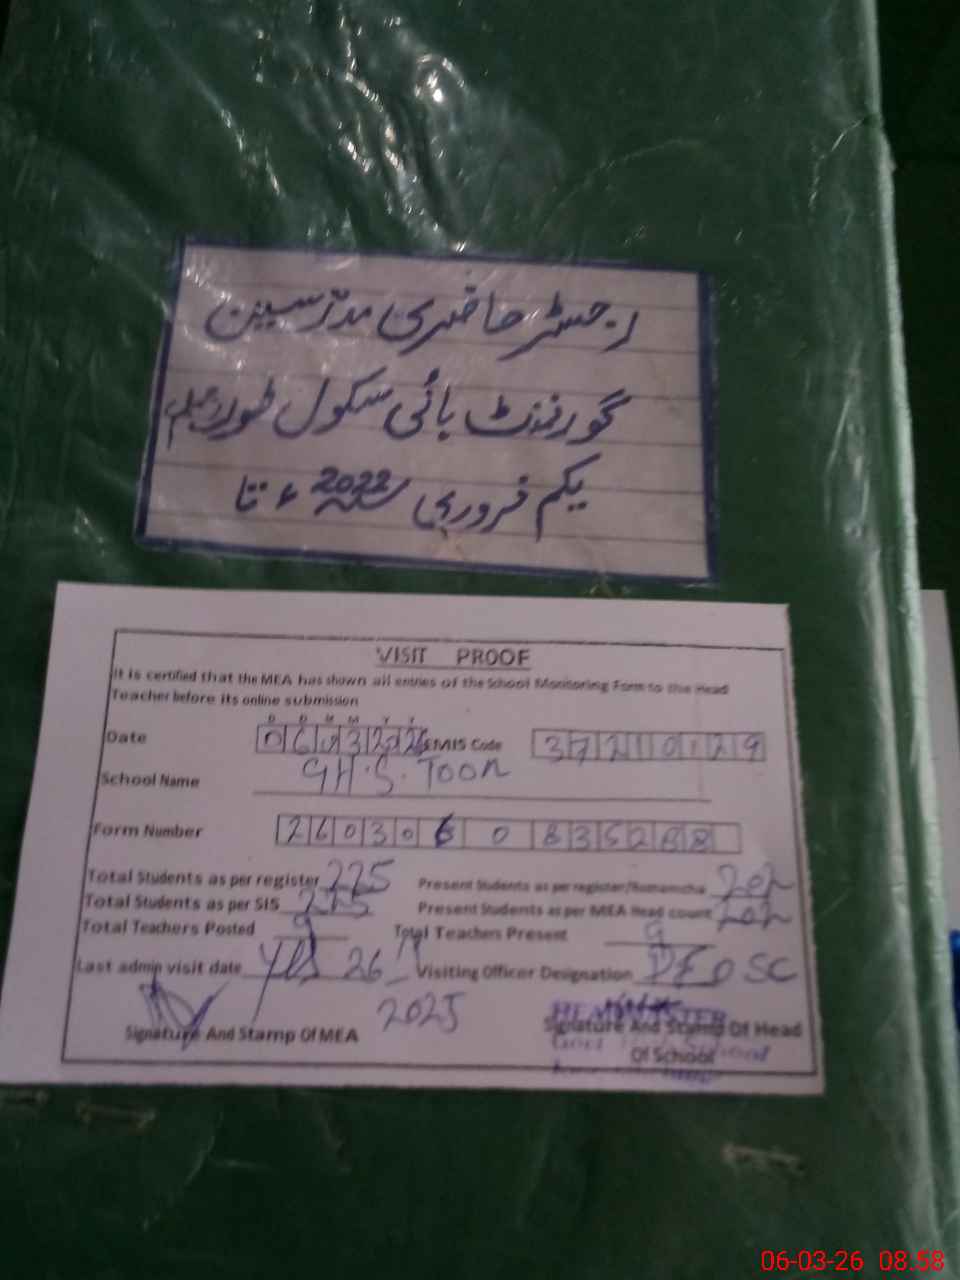 رجسٹر حاضری مدرسین
گورنمنٹ ہائی سکول طور جہلم
یکم فروری 2022ء تا
VISIT PROOF
It is certified that the MEA has shown all entries of the School Monitoring Form to the Head
Teacher before its online submission
D D M M Y Y
Date 060326 EMIS Code 37210129
School Name GH.S. TOOR
Form Number
Total Students as per register 225 Present Students as per register/Roznamcha 202
Total Students as per SIS 225 Present Students as per MEA Head count 202
Total Teachers Posted 9 Total Teachers Present 9
Last admin visit date Yes 26 Visiting Officer Designation DEO SC
2025
Signature And Stamp Of MEA Signature And Stamp Of Head
Of School
HEADMASTER
06-03-26 08.58